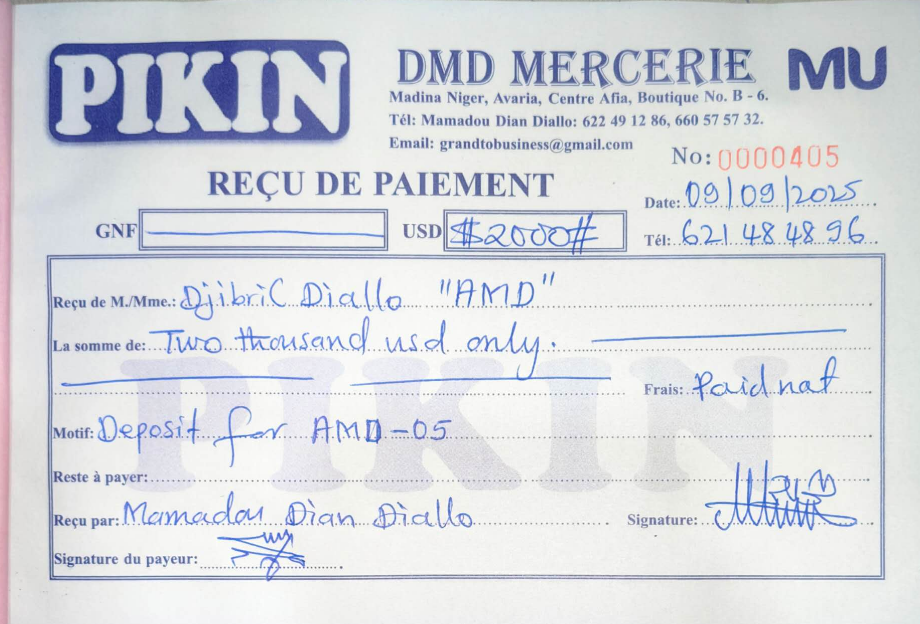 PIKIN
DMD MERCERIE
MU
Madina Niger, Avaria, Centre Afia, Boutique No. B - 6.
Tél: Mamadou Dian Diallo: 622 49 12 86, 660 57 57 32.
Email: grandtobusiness@gmail.com
No: 0000405
REÇU DE PAIEMENT
Date: 09/09/2025
GNF USD $2000#
Tél: 621 48 48 96
Reçu de M./Mme.: Djibril Diallo "AMD"
La somme de: Two thousand usd only.
Frais: Paid nat
PIKIN
Motif: Deposit for AMD-05
Reste à payer:
Reçu par: Mamadou Dian Diallo
Signature:
Signature du payeur: